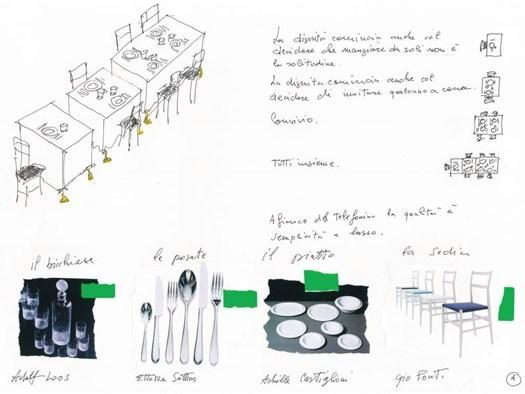 La dignità comincia anche col
decidere che mangiare da soli non è
la solitudine.
La dignità comincia anche col
decidere di invitare qualcuno a cena.
Convivio.
Tutti insieme.
A fianco del telefonino la qualità è
semplicità e lusso.
il bicchiere
le posate
il piatto
la sedia
Adolf Loos
Ettore Sottsass
Achille Castiglioni
Gio Ponti